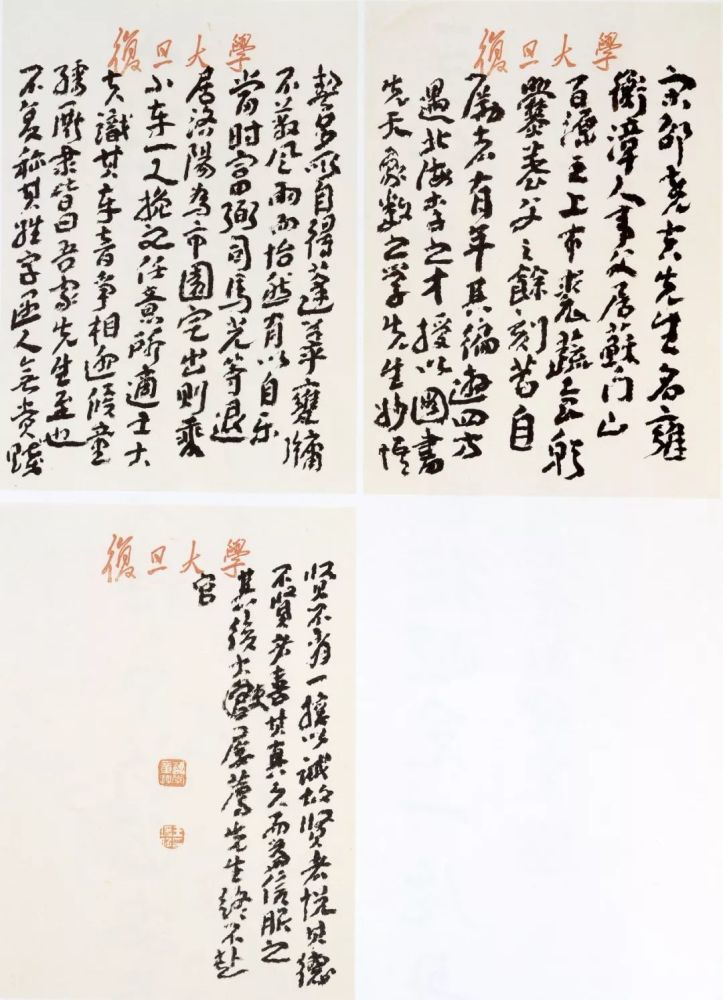 復旦大學
宋邵堯夫先生名雍
衡漳人事父居蘇门山
百源之上布裘蔬食躬
爨养父之餘刻苦自
勵者有年其後遊四方
遇北海李之才授以圖書
先天象數之学先生妙悟
復旦大學
契多所自得蓬荜甕牖
不蔽风雨而怡然有以自乐
當时富弼司馬光等退
居洛陽為市園宅出则乘
小车一人挽之任意所適士大
夫識其车音争相迎候童
孺厮隶皆曰吾家先生至也
不复称其姓字遇人无贵贱
復旦大學
贤不肖一接以诚故贤者悦其德
不贤者喜其真久而益信服之
其後大臣屡薦先生终不赴
官